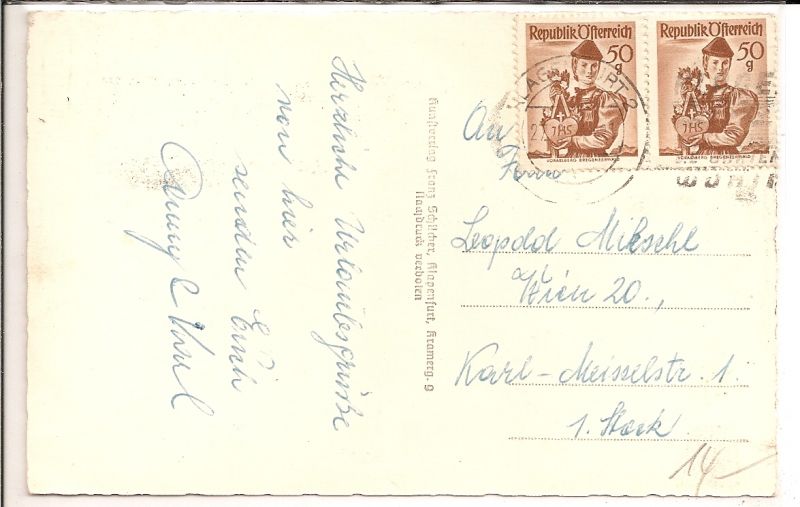 Herzliche Urlaubsgrüße
von hier
senden Euch
&
Kunstverlag Franz Schilcher, Klagenfurt, Kramerg. 9
Nachdruck verboten
Republik Österreich
50
g
VORARLBERG BREGENZERWALD
Republik Österreich
50
g
VORARLBERG BREGENZERWALD
KLAGENFURT 2
An
Herrn
Leopold Mikschl
Wien 20.,
Karl-Meisselstr. 1.
1. Stock
14-